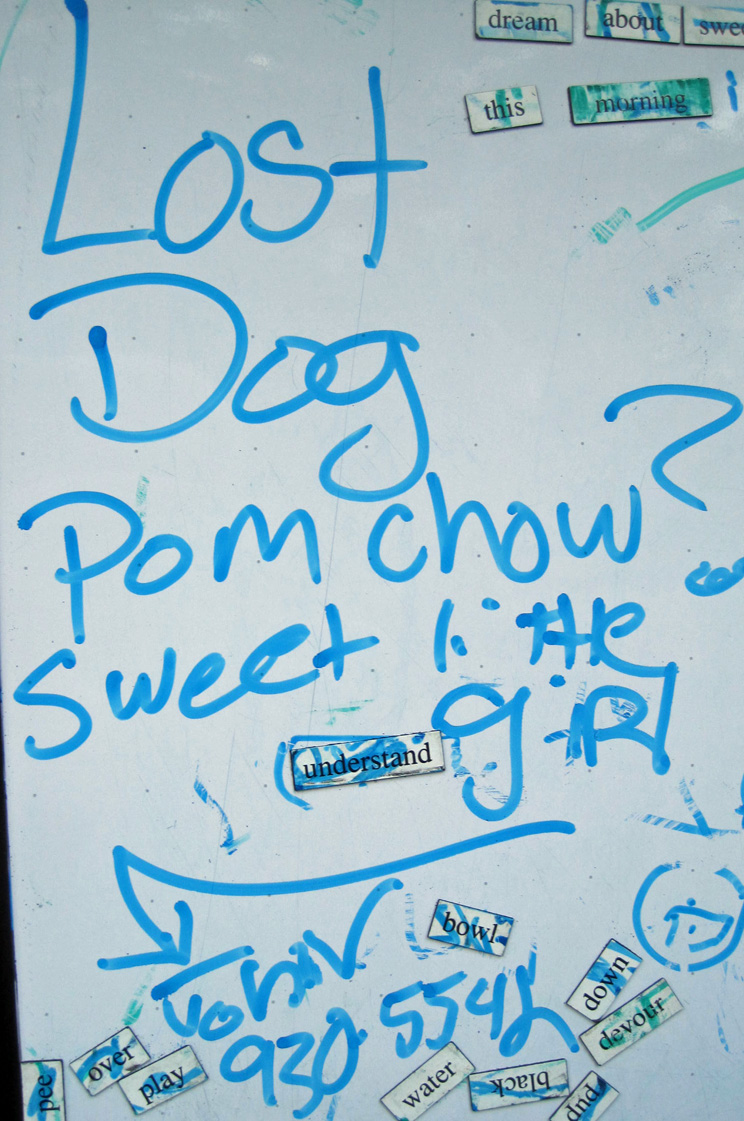 dream about
this morning
Lost
Dog
Pom chow ?
sweet little
girl
understand
bowl
John
930 5542
down
devour
over
play
pee
water
black